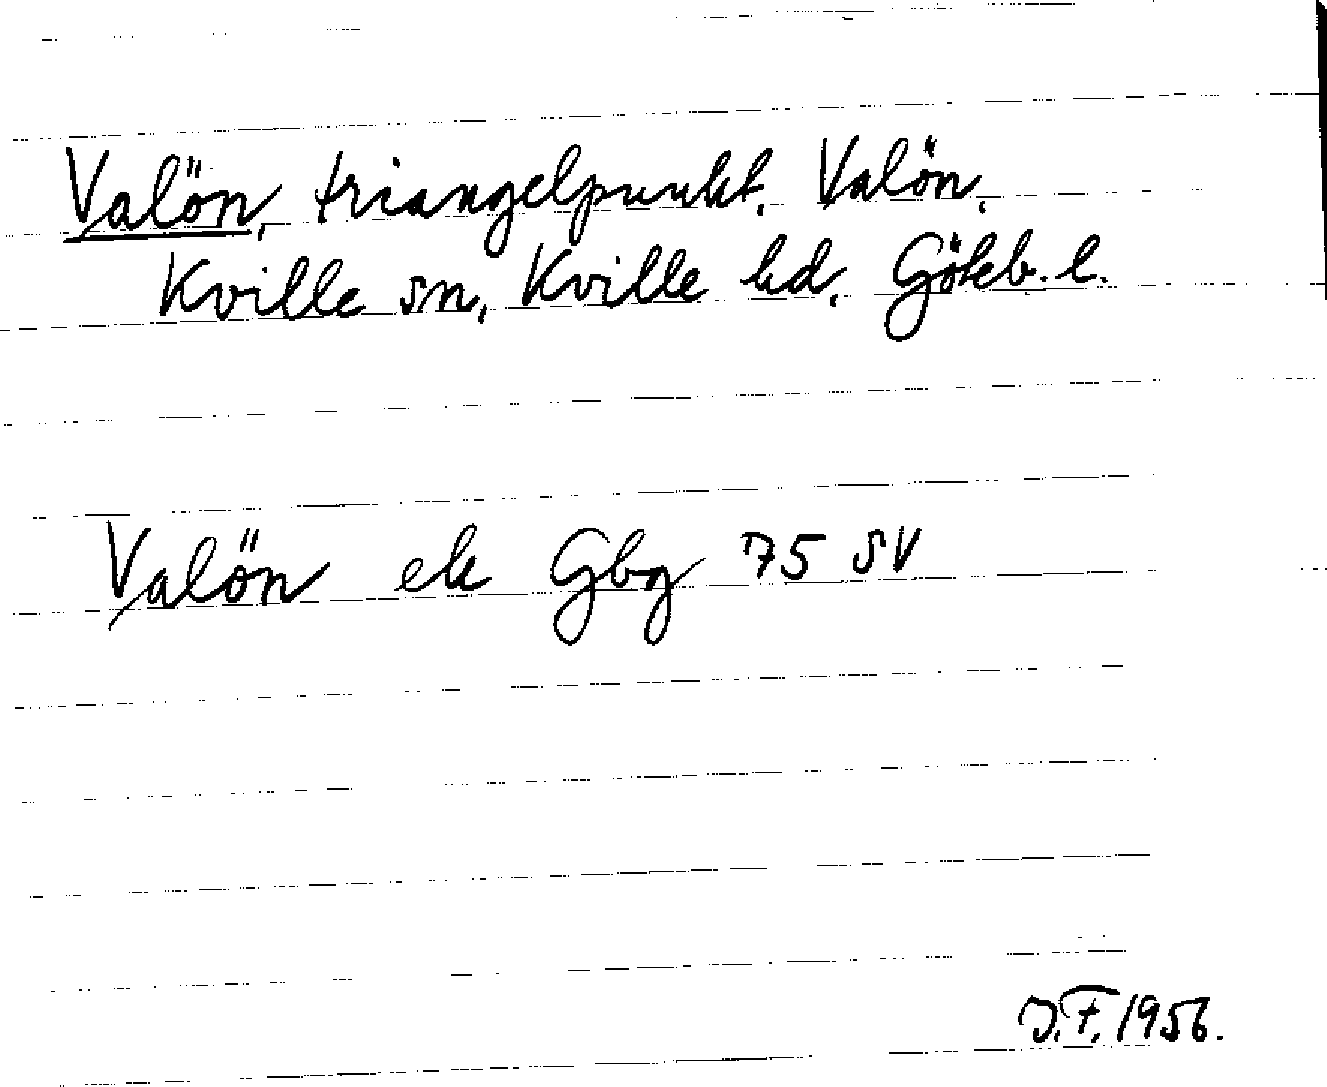 Valön, triangelpunkt, Valön,
Kville sn, Kville hd, Göteb. l.
Valön ek Gbg 75 SV
J.F. 1956.